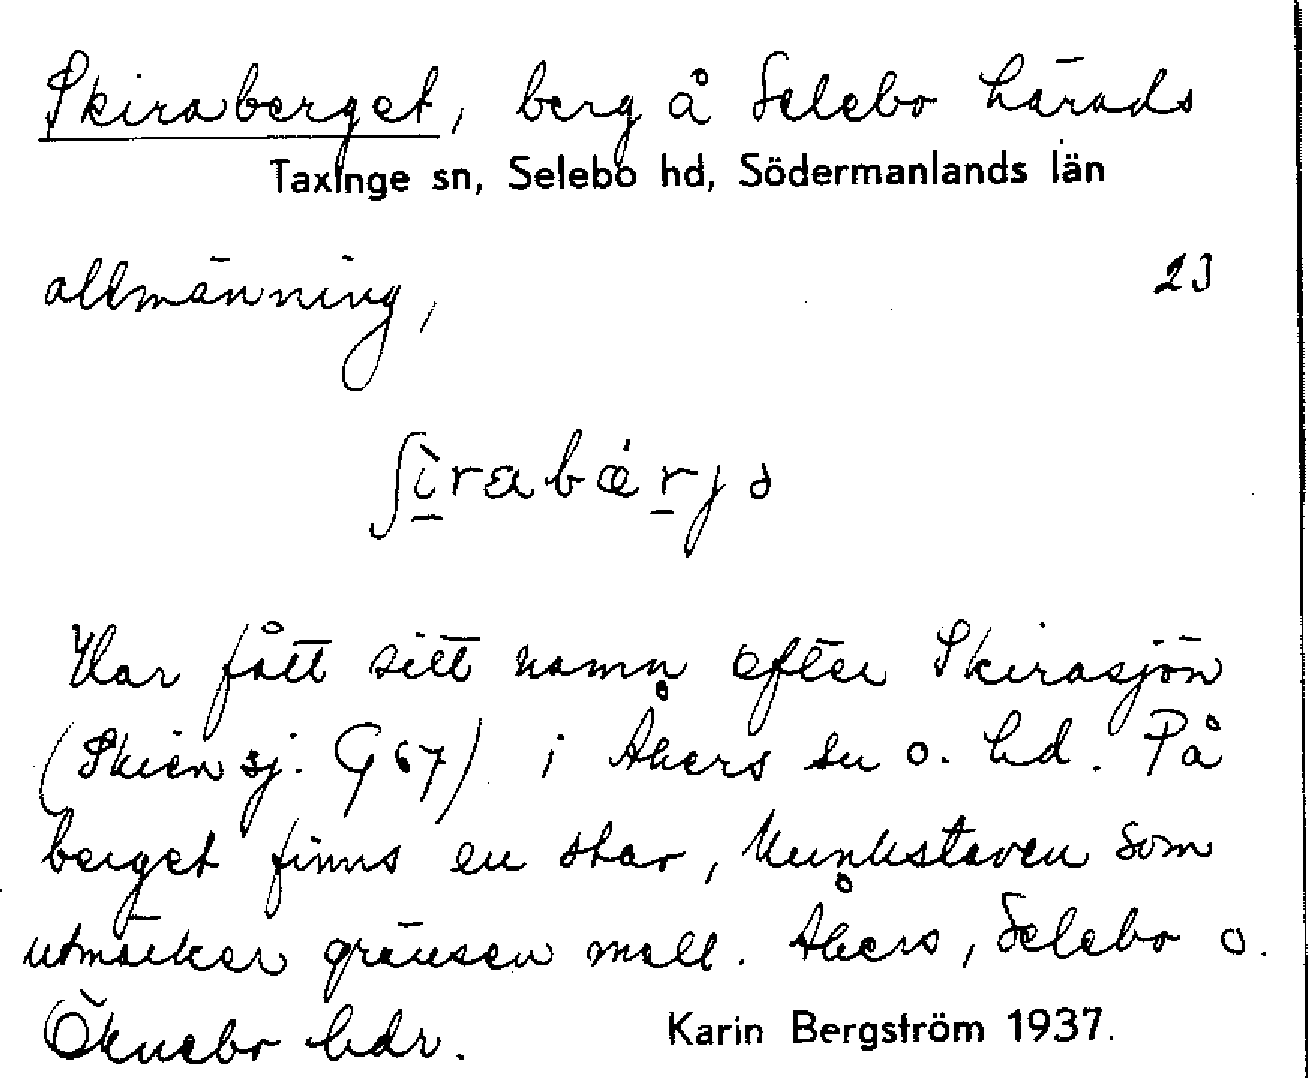 Skiraberget, berg å Selebo härads
Taxinge sn, Selebo hd, Södermanlands län
allmänning,
23
ʃi̱rabæṟjə
Har fått sitt namn efter Skirasjön
(Skiren sj. G 67) i Åkers sn o. hd. På
berget finns en star, Munkstaven som
utmärker gränsen mell. Åkers, Selebo o.
Öknebo hdr.
Karin Bergström 1937.